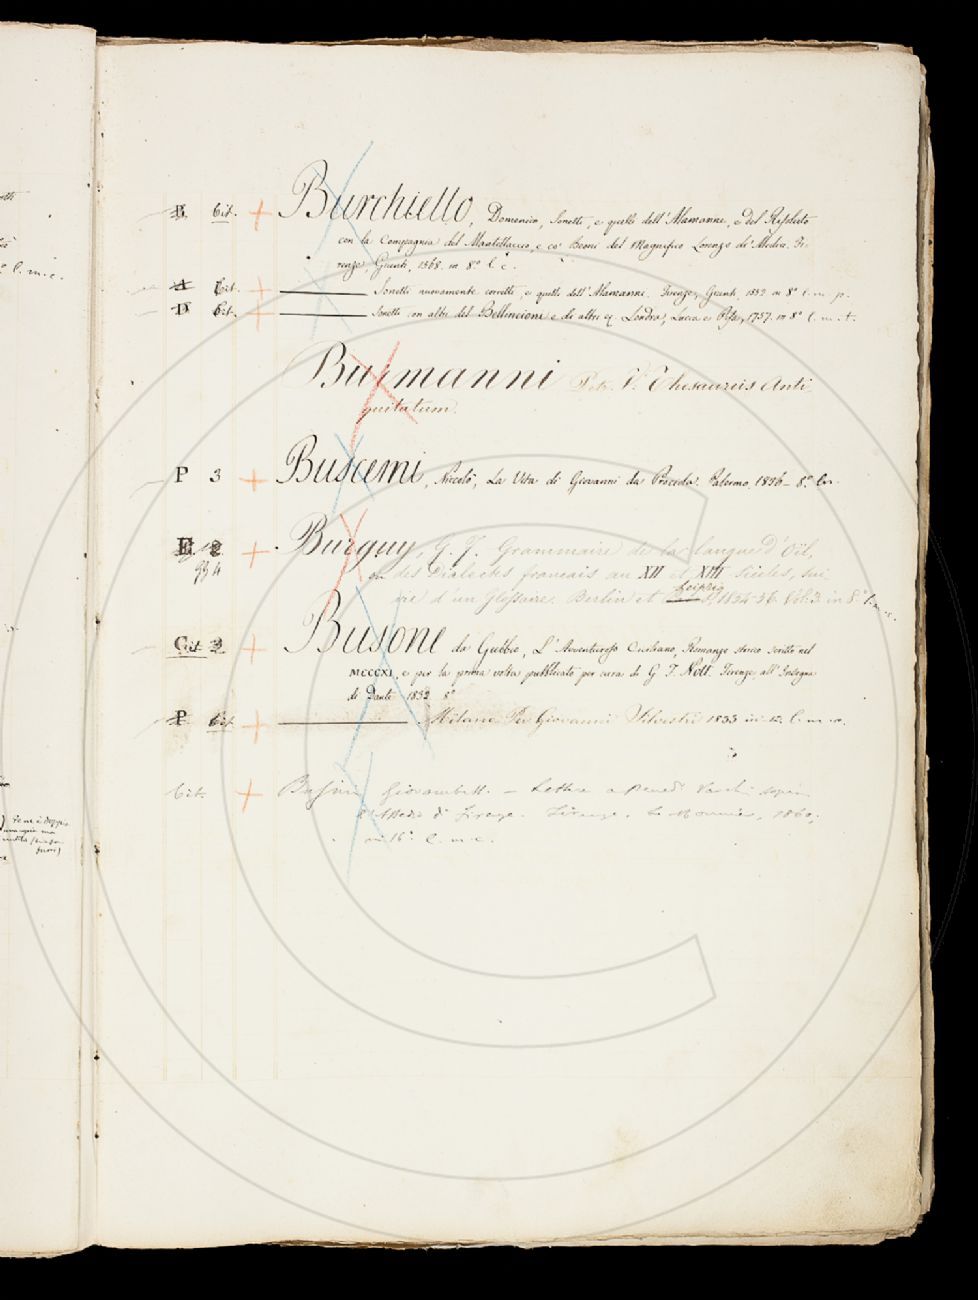 B Cit. + Burchiello, Domenico, Sonetti, e quelli dell'Alamanni, e del Risoluto
con la Compagnia del Mantellaccio, e co' Beoni del Magnifico Lorenzo de' Medici. Fi-
renze, Giunti, 1568. in 8º l. c.
A Cit. + Sonetti nuovamente corretti, e quelli dell'Alamanni. Firenze, Giunti, 1552 in 8º l. m. p.
D Cit. + Sonetti con altri del Bellincioni e di altri Londra, Lucca e Pisa, 1757. in 8º l. m. t.
Burmanni Petr. V. Thesaurus Anti-
quitatum.
P 3 + Buscemi, Niccolò, La Vita di Giovanni da Procida. Palermo, 1836 - 8º
E 2 + Burguy, G. F. Grammaire de la langue d'Oïl,
994
des Dialectes français au XII et XIII siècles, sui-
vie d'un Glossaire. Berlin et Leipzig 1854-56. Vol. 3. in 8º l. m. c.
Cit. 2 + Busone da Gubbio, L'Avventuroso Ciciliano, Romanzo storico scritto nel
MCCCXI, e per la prima volta pubblicato per cura di G. F. Nott. Firenze, all'Insegna
di Dante 1832 8º
P Cit. + Milano Per Giovanni Silvestri 1833 in 12. l. m. r.
Cit. + Busini Giovambatt. – Lettere a Bened. Varchi sopra
Assedio di Firenze. Firenze. Le Monnier, 1860,
in 16º. l. m. c.
l. m. c.